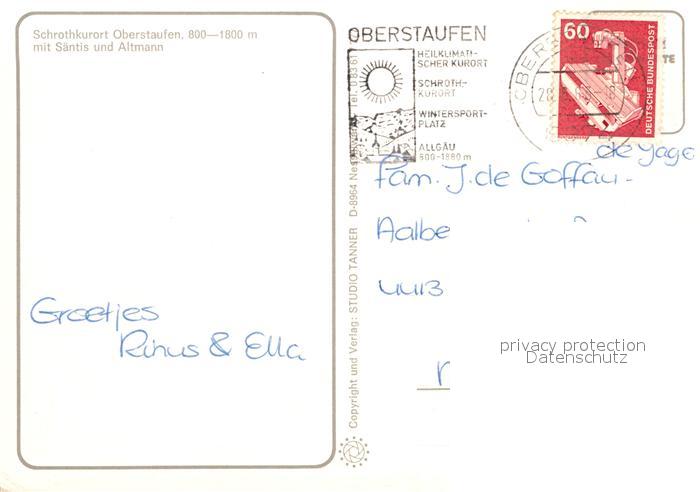 Schrothkurort Oberstaufen, 800—1800 m
mit Säntis und Altmann
Groetjes
Rinus & Ella
Copyright und Verlag: STUDIO TANNER D-8964 Nes
Tel. 0 83 61
OBERSTAUFEN
HEILKLIMATI-
SCHER KURORT
SCHROTH-
KURORT
WINTERSPORT-
PLATZ
ALLGÄU
800-1880 m
60
DEUTSCHE BUNDESPOST
OBERS
28.
TE
de Jage
Fam. J. de Goffau -
Aalbe
privacy protection
Datenschutz